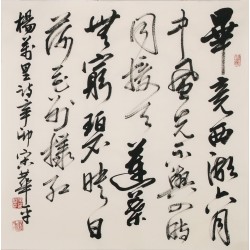 畢竟西湖六月
中風光不與四時
同接天蓮葉
無窮碧映日
荷花別樣紅
楊萬里詩辛卯宋華平